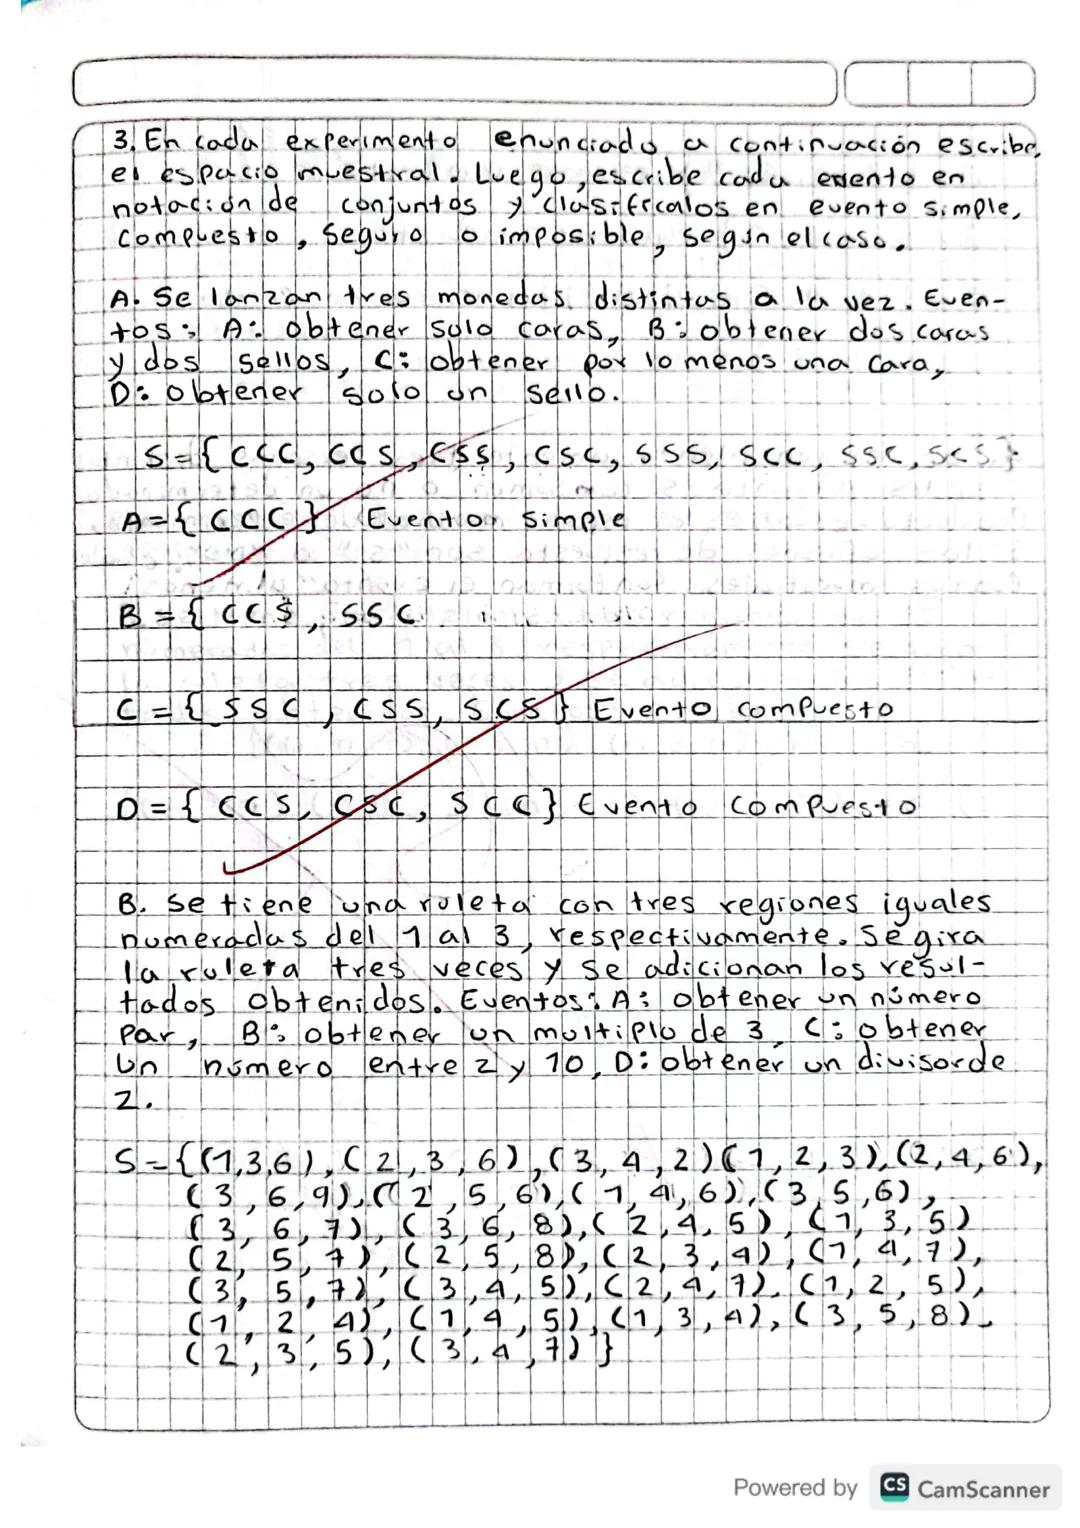 3. En cada experimento enunciado a continuación escribe,
el espacio muestral. Luego, escribe cada evento en
notación de conjuntos y clasifícalos en evento simple,
compuesto, seguro o imposible, según el caso.
A. Se lanzan tres monedas distintas a la vez. Even-
tos: A: obtener solo caras, B: obtener dos caras
y dos sellos, C: obtener por lo menos una cara,
D: Obtener solo un sello.
S={CCC, CCS, CSS, CSC, SSS, SCC, SSC, SCS}
A={CCC} Evento simple
B={CCS, SSC
C={SSC, CSS, SCS} Evento compuesto
D={CCS, CSC, SCC} Evento compuesto
B. Se tiene una ruleta con tres regiones iguales
numeradas del 1 al 3, respectivamente. Se gira
la ruleta tres veces y se adicionan los resul-
tados obtenidos. Eventos: A: obtener un número
par, B: obtener un multiplo de 3, C: obtener
un número entre 2 y 10, D: obtener un divisor de
2.
S={(1,3,6),(2,3,6),(3,4,2)(1,2,3),(2,4,6),
(3,6,9),(2,5,6),(1,4,6),(3,5,6),
(3,6,7),(3,6,8),(2,4,5),(1,3,5)
(2,5,7),(2,5,8),(2,3,4),(1,4,7),
(3,5,7),(3,4,5),(2,4,7),(1,2,5),
(1,2,4),(1,4,5),(1,3,4),(3,5,8),
(2,3,5),(3,4,7)}
Powered by CS CamScanner